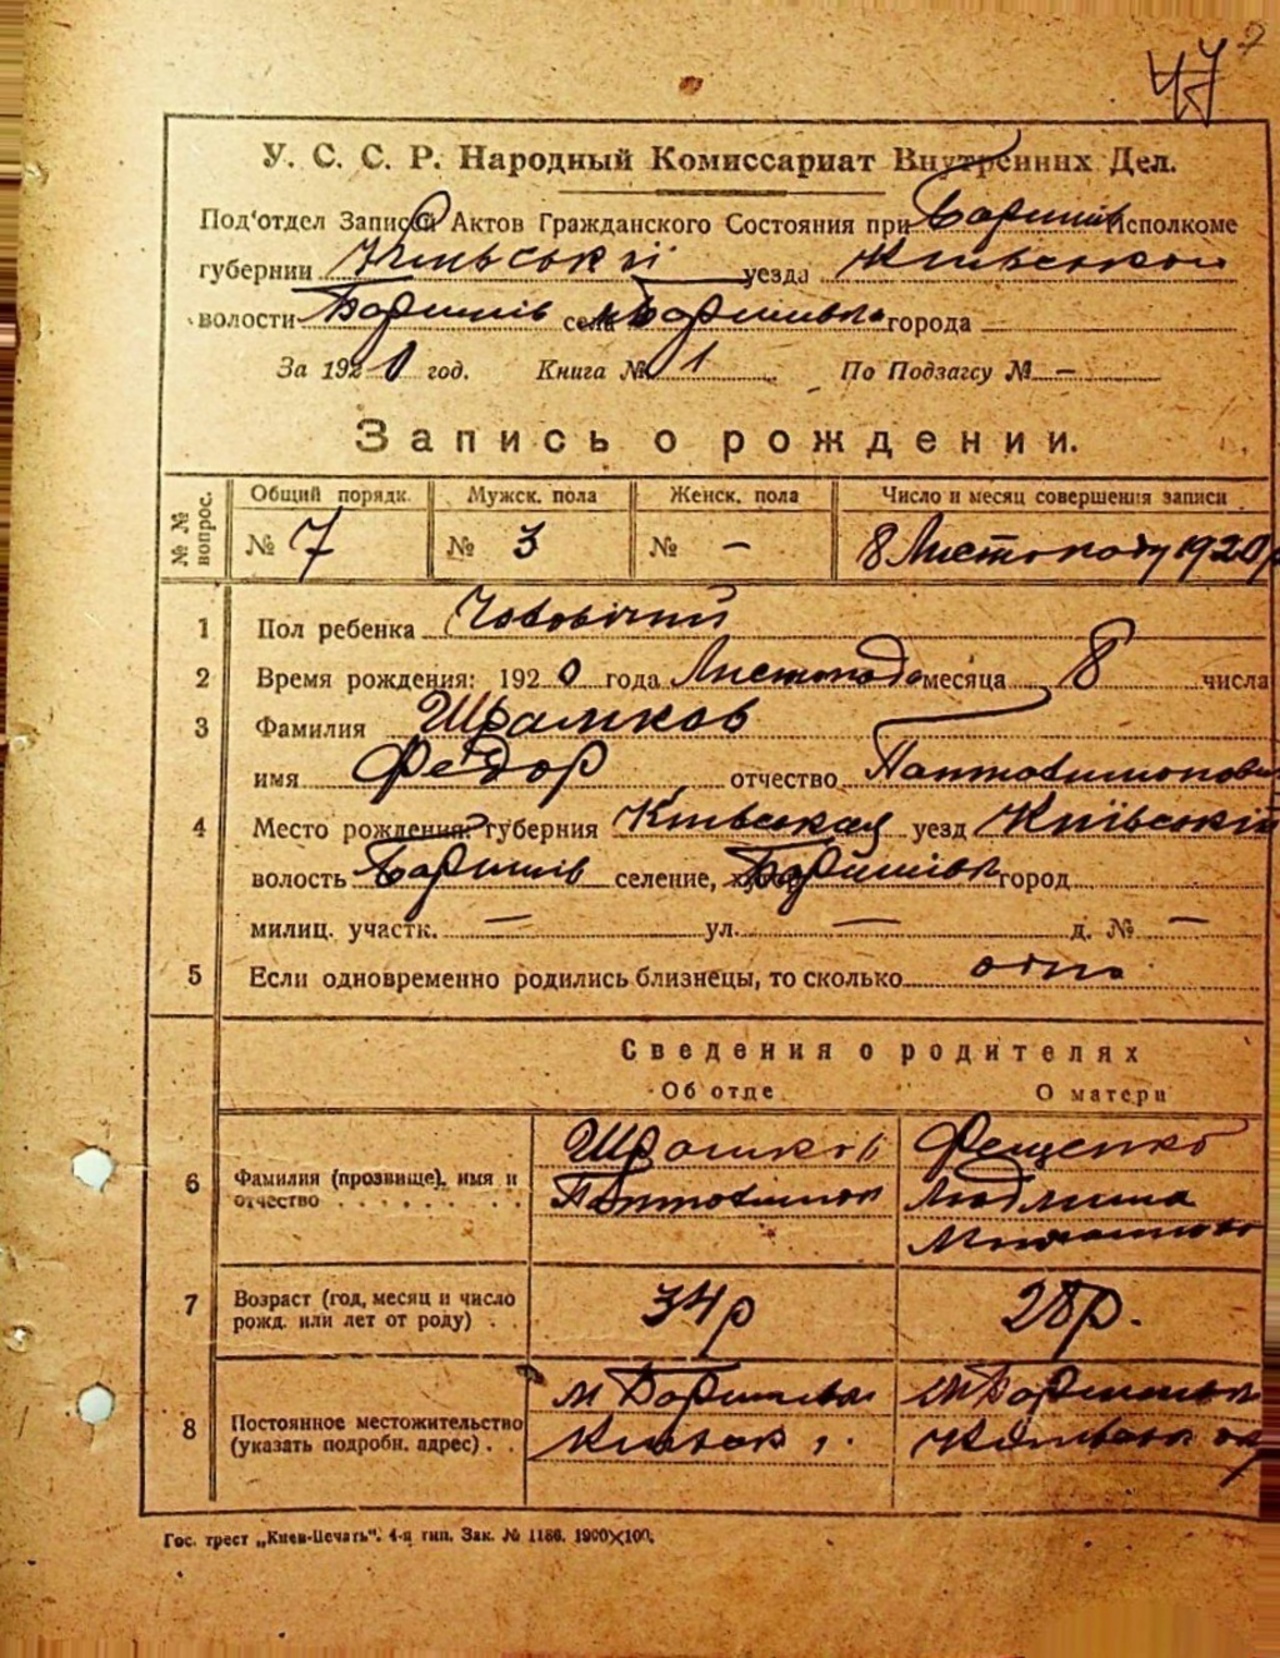 47
2
У. С. С. Р. Народный Комиссариат Внутренних Дел.
Под'отдел Записи Актов Гражданского Состояния при Баришів Исполкоме
губернии Київської уезда Київського
волости Баришів села м Баришівка города
За 1920 год. Книга № 1 По Подзагсу № —
Запись о рождении.
№ № вопрос. Общий порядк. Мужск. пола Женск. пола Число и месяц совершения записи
№ 7 № 3 № — 8 Листопаду 1920 р
1 Пол ребенка Чоловічий
2 Время рождения: 1920 года Листопада месяца 8 числа
3 Фамилия Шрамков
имя Федор отчество
4 Место рождения: губерния Київская уезд Київський
волость Баришів селение, хутор Баришівка город
милиц. участк. — ул. — д. № —
5 Если одновременно родились близнецы, то сколько одно
Сведения о родителях
Об отце О матери
6 Фамилия (прозвище), имя и отчество
Шрамков Фещенко
Людмила
7 Возраст (год, месяц и число рожд. или лет от роду)
34 р 28 р.
8 Постоянное местожительство (указать подробн. адрес)
м Баришівка м Баришівка
Гос. трест „Киев-Печать“. 4-я тип. Зак. № 1186. 1900×100.